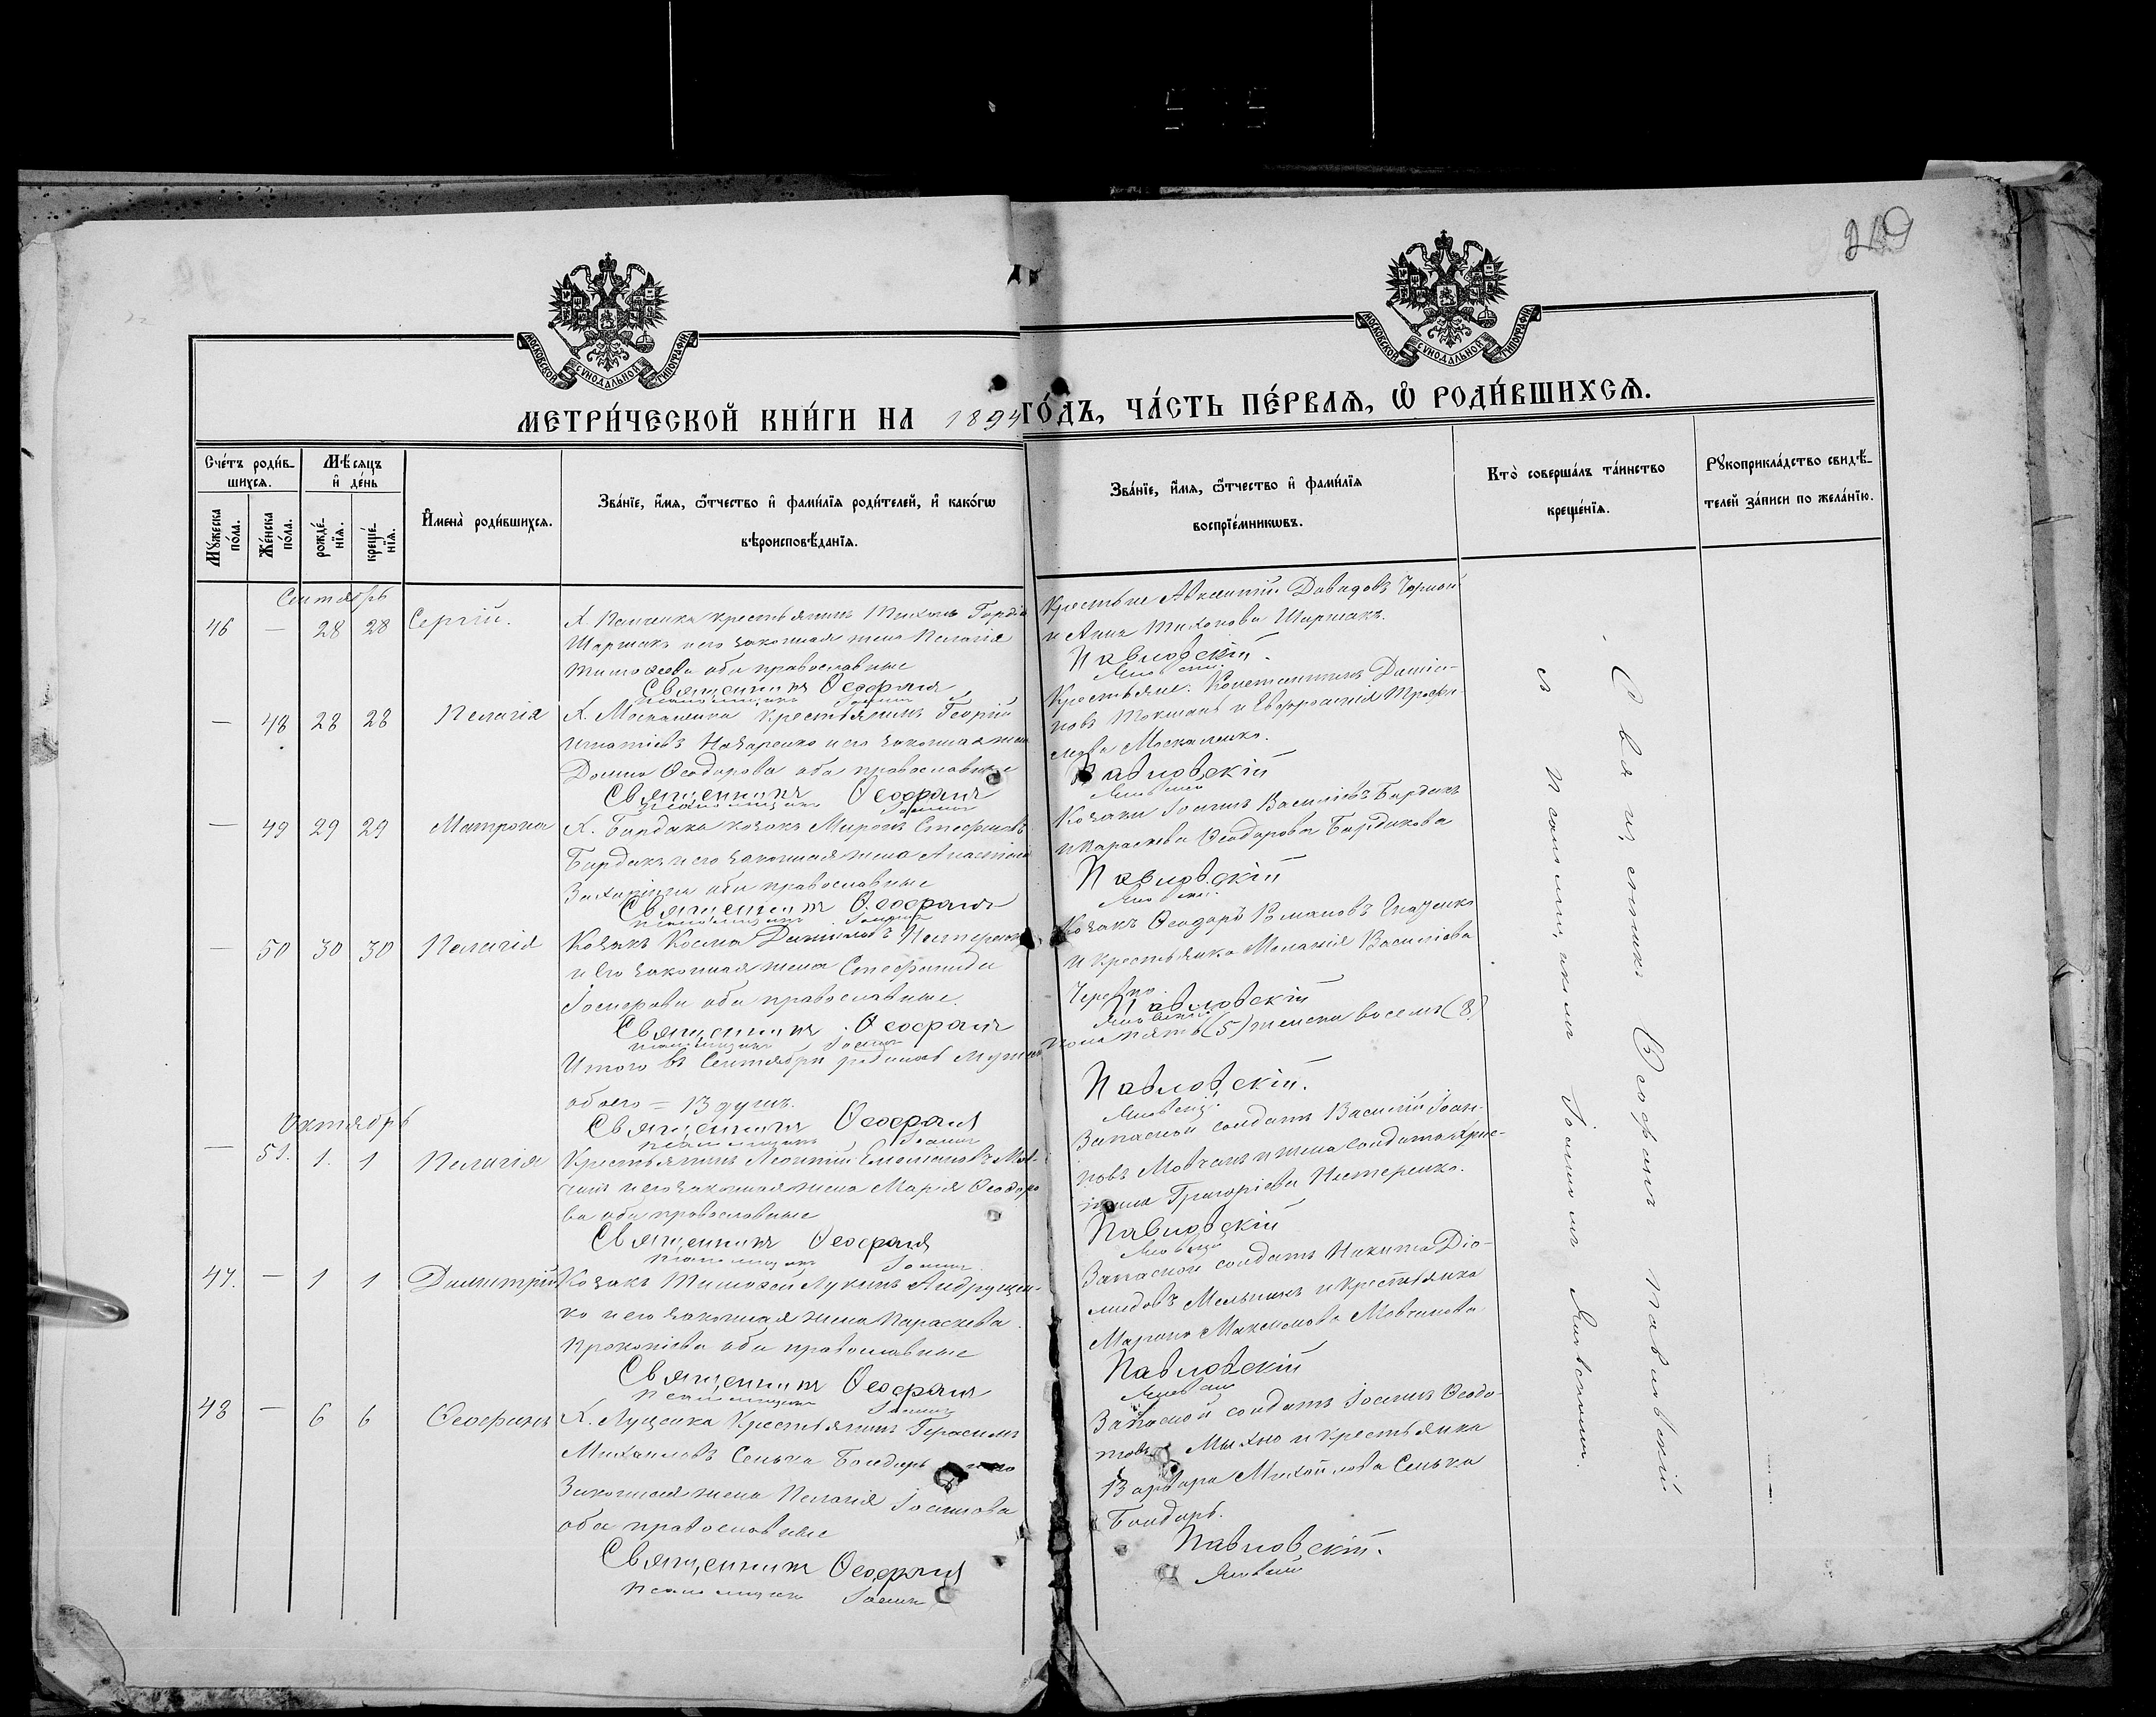 249
МОСКОВСКОЙ СѴНОДАЛЬНОЙ ТИПОГРАФІИ
МОСКОВСКОЙ СѴНОДАЛЬНОЙ ТИПОГРАФІИ
МЕТРИ́ЧЕСКОЙ КНИ́ГИ НА 1894 ГО́ДЪ, ЧА́СТЬ ПЕ́РВАѦ, Ѽ РОДИ́ВШИХСѦ.
Сче́тъ роди́в-
шихсѧ.
Мѣ́сѧцъ
и҆ де́нь
Мꙋ́жеска по́ла.
Же́нска по́ла.
рожде́-
нїѧ.
креще́-
нїѧ.
И҆мена̀ роди́вшихсѧ.
Зва́нїе, и҆́мѧ, ѻ҆́тчество и҆ фами́лїѧ роди́телей, и҆ како́гѡ
вѣроисповѣ́данїѧ.
Зва́нїе, и҆́мѧ, ѻ҆́тчество и҆ фами́лїѧ
воспрїе́мникѡвъ.
Кто̀ соверша́лъ та́инство
креще́нїѧ.
Рꙋкоприкла́дство свидѣ́-
телей за́писи по жела́нїю.
Сентябрь
46 — 28 28 Сергій.
Х. Панченка крестьянинъ Тихонъ
Шаршакъ и его законная жена Пелагія
Тимоѳеева оба православные
Священникъ Ѳеофанъ
Псаломщикъ Іоаннъ
Крестьяне Авксентій Давидовъ
и Анна Тихонова Шаршакъ.
Павловскій.
Яновскій.
— 48 28 28 Пелагія
Х. Москаленка крестьянинъ Георгій
Игнатіевъ Назаренко и его законная жена
Домна Ѳеодорова оба православные
Священникъ Ѳеофанъ
Псаломщикъ Іоаннъ
Крестьяне: Константинъ Даміа-
новъ и Евфросинія Трофи-
мова Москаленко.
Павловскій
Яновскій
— 49 29 29 Матрона
Х. Бардака козакъ Миронъ Стефановъ
Бардакъ и его законная жена Анастасія
Захаріина оба православные
Священникъ Ѳеофанъ
Псаломщикъ Іоаннъ
Козаки Іоаннъ Василіевъ Бардакъ
и Параскева Ѳеодорова Бардакова
Павловскій
Яновскій.
— 50 30 30 Пелагія
Козакъ Косма Даниловъ Нестеренко
и его законная жена Стефанида
Іосифова оба православные.
Священникъ Ѳеофанъ
Псаломщикъ Іоаннъ
Козакъ Ѳеодоръ Романовъ
и крестьянка Меланія Василіева
Павловскій
Яновскій
Итого въ Сентябрѣ родилось мужеска
пола пять (5) женска восемь (8)
обоего = 13 душъ.
Священникъ Ѳеофанъ
Псаломщикъ Іоаннъ
Павловскій.
Яновскій
Октябрь
— 51. 1. 1 Пелагія
Крестьянинъ Леонтій Мов-
чанъ и его законная жена Марія Ѳеодоро
ва оба православные
Священникъ Ѳеофанъ
Псаломщикъ Іоаннъ
Запасной солдатъ Василій Іоан-
новъ Мовчанъ и жена солдата Хрис-
тина Григоріева Нестеренко.
Павловскій
Яновскій
47. — 1 1 Димитрій
Козакъ Тимоѳей Лукинъ Андрущен-
ко и его законная жена Параскева
Прокопіева оба православные
Священникъ Ѳеофанъ
Псаломщикъ Іоаннъ
Запасной солдатъ Никита Діо-
мидовъ Мельникъ и крестьянка
Марина Максимова Мовчанова
Павловскій
Яновскій
48 — 6 6 Ѳеофанъ
Х. Луценка Крестьянинъ Герасимъ
Михаиловъ Сенька Бондарь и его
Законная жена Пелагія Іоаннова
оба православные
Священникъ Ѳеофанъ
Псаломщикъ Іоаннъ
Запасной солдатъ Іоаннъ Ѳеодо-
товъ Михно и крестьянка
Варвара Михайлова Сенька
Бондарь.
Павловскій.
Яновскій
Священникъ Ѳеофанъ Павловскій
съ псаломщикомъ Іоанномъ Яновскимъ.